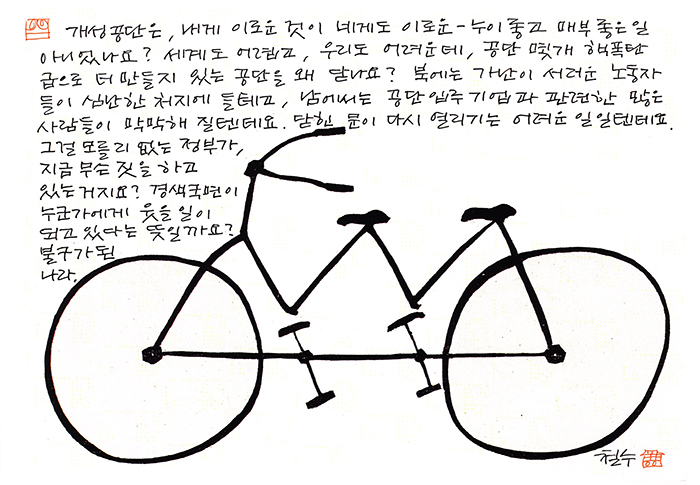 개성공단은, 내게 이로운 것이 네게도 이로운 - 누이좋고 매부좋은일
아니었나요? 세계도 어렵고, 우리도 어려운데, 공단 몇개 핵폭탄
급으로 더 만들지 있는 공단을 왜 닫나요? 북에는 가난이 서러운 노동자
들이 심난한 처지에 들테고, 남에서는 공단입주기업과 관련한 많은
사람들이 막막해 질텐데요. 닫힌 문이 다시 열리기는 어려운 일일텐데요.
그걸 모를리 없는 정부가,
지금 무슨 짓을 하고
있는거지요? 경색국면이
누군가에게 웃을일이
되고 있다는 뜻일까요?
불구가된
나라.
철수